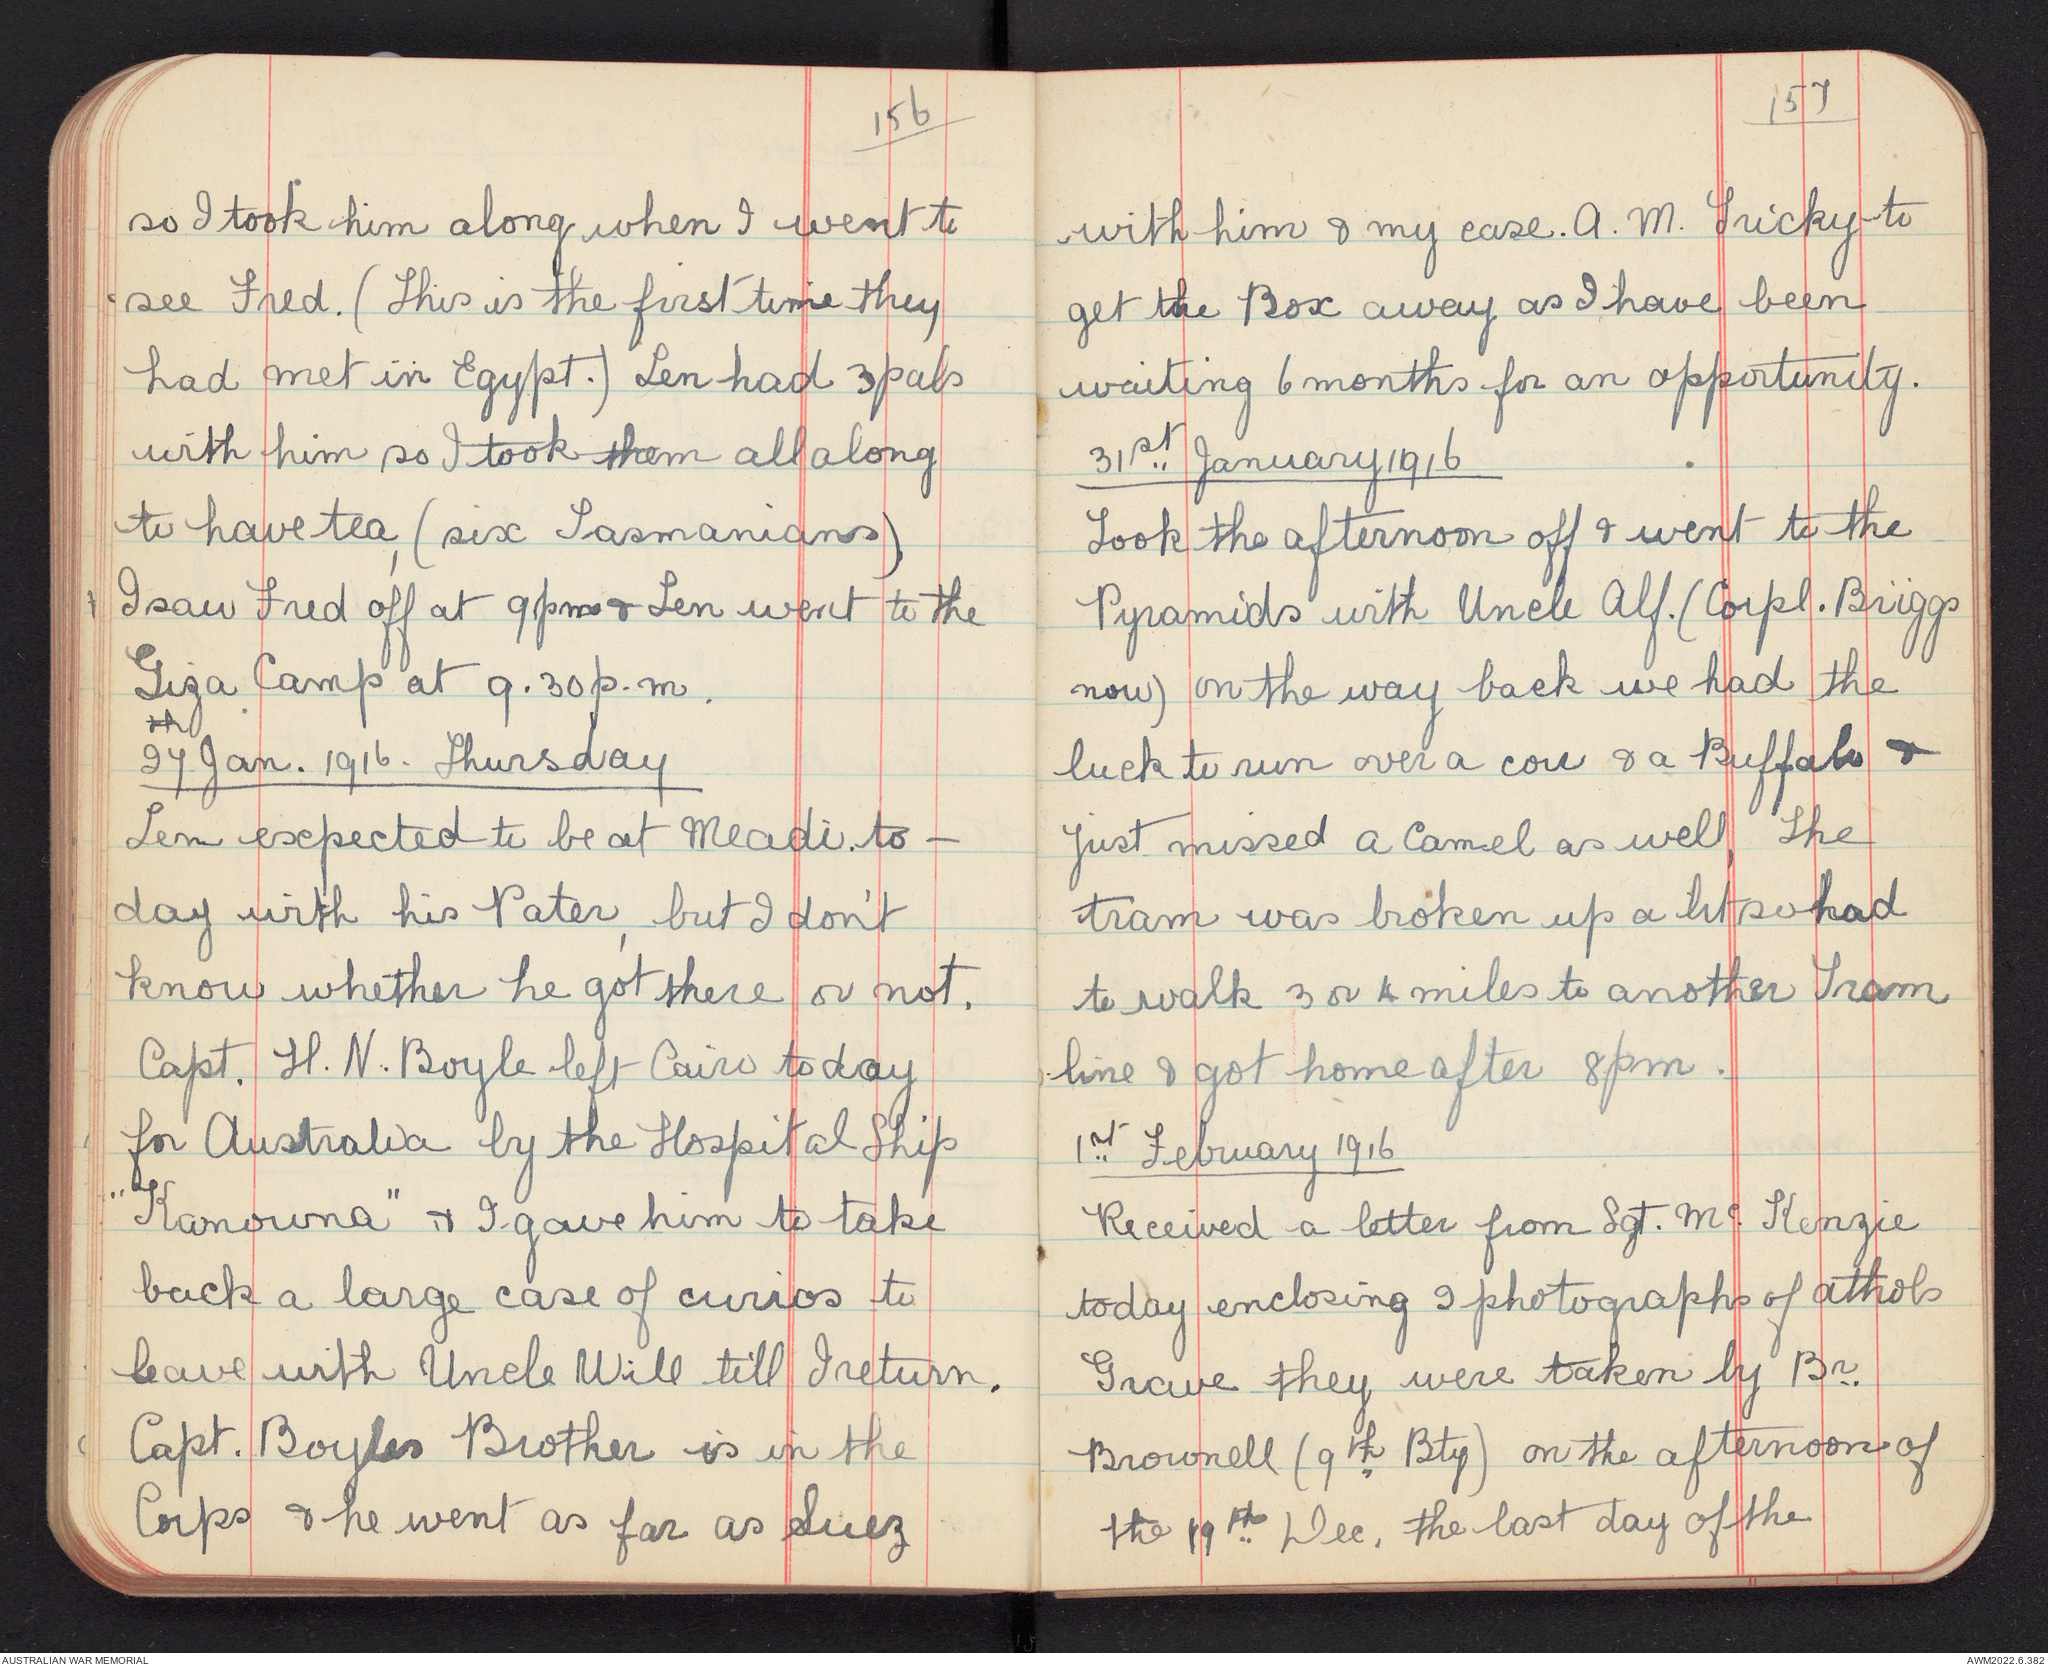 156
so I took him along when I went to
see Fred. (This is the first time they
had met in Egypt.) Len had 3 pals
with him so I took them all along
to have tea, (six Tasmanians)
I saw Fred off at 9pm & Len went to the
Giza Camp at 9.30p.m.
27th Jan. 1916. Thursday
Len expected to be at Meadi to-
day with his Pater, but I don't
know whether he got there or not.
Capt. H. N. Boyle left Cairo today
for Australia by the Hospital Ship
"Kanowna" & I gave him to take
back a large case of curios to
leave with Uncle Will till I return.
Capt. Boyles Brother is in the
Corps & he went as far as Suez
157
with him & my case. A. M. Tricky to
get the Box away as I have been
waiting 6 months for an opportunity.
31st January 1916
Took the afternoon off & went to the
Pyramids with Uncle Alf. (Corpl. Briggs
now) on the way back we had the
luck to run over a cow & a Buffalo &
just missed a Camel as well, The
tram was broken up a bit so had
to walk 3 or 4 miles to another Tram
line & got home after 8pm.
1st February 1916
Received a letter from Sgt. Mc. Kenzie
today enclosing 2 photographs of Athols
Grave they were taken by Br.
Brownell (9th Bty) on the afternoon of
the 19th Dec, the last day of the
AUSTRALIAN WAR MEMORIAL
AWM2022.6.382